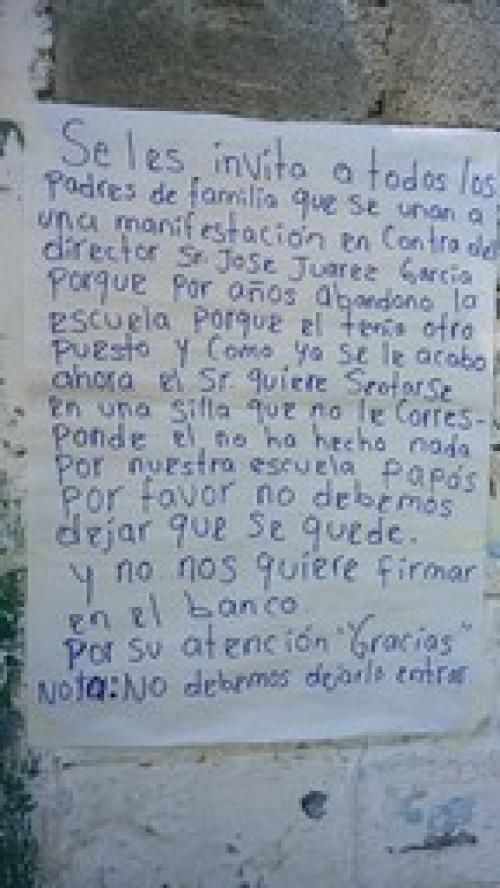 Se les invita a todos los
padres de familia que se unan a
una manifestación en Contra del
director Sr. Jose Juarez Garcia
porque por años abandono la
escuela porque el tenia otro
puesto y Como ya se le acabo
ahora el Sr. quiere Sentarse
en una silla que no le Corres-
ponde el no ha hecho nada
por nuestra escuela papás
por favor no debemos
dejar que se quede.
y no nos quiere firmar
en el banco.
Por su atención "Gracias"
Nota: NO debemos dejarlo entrar